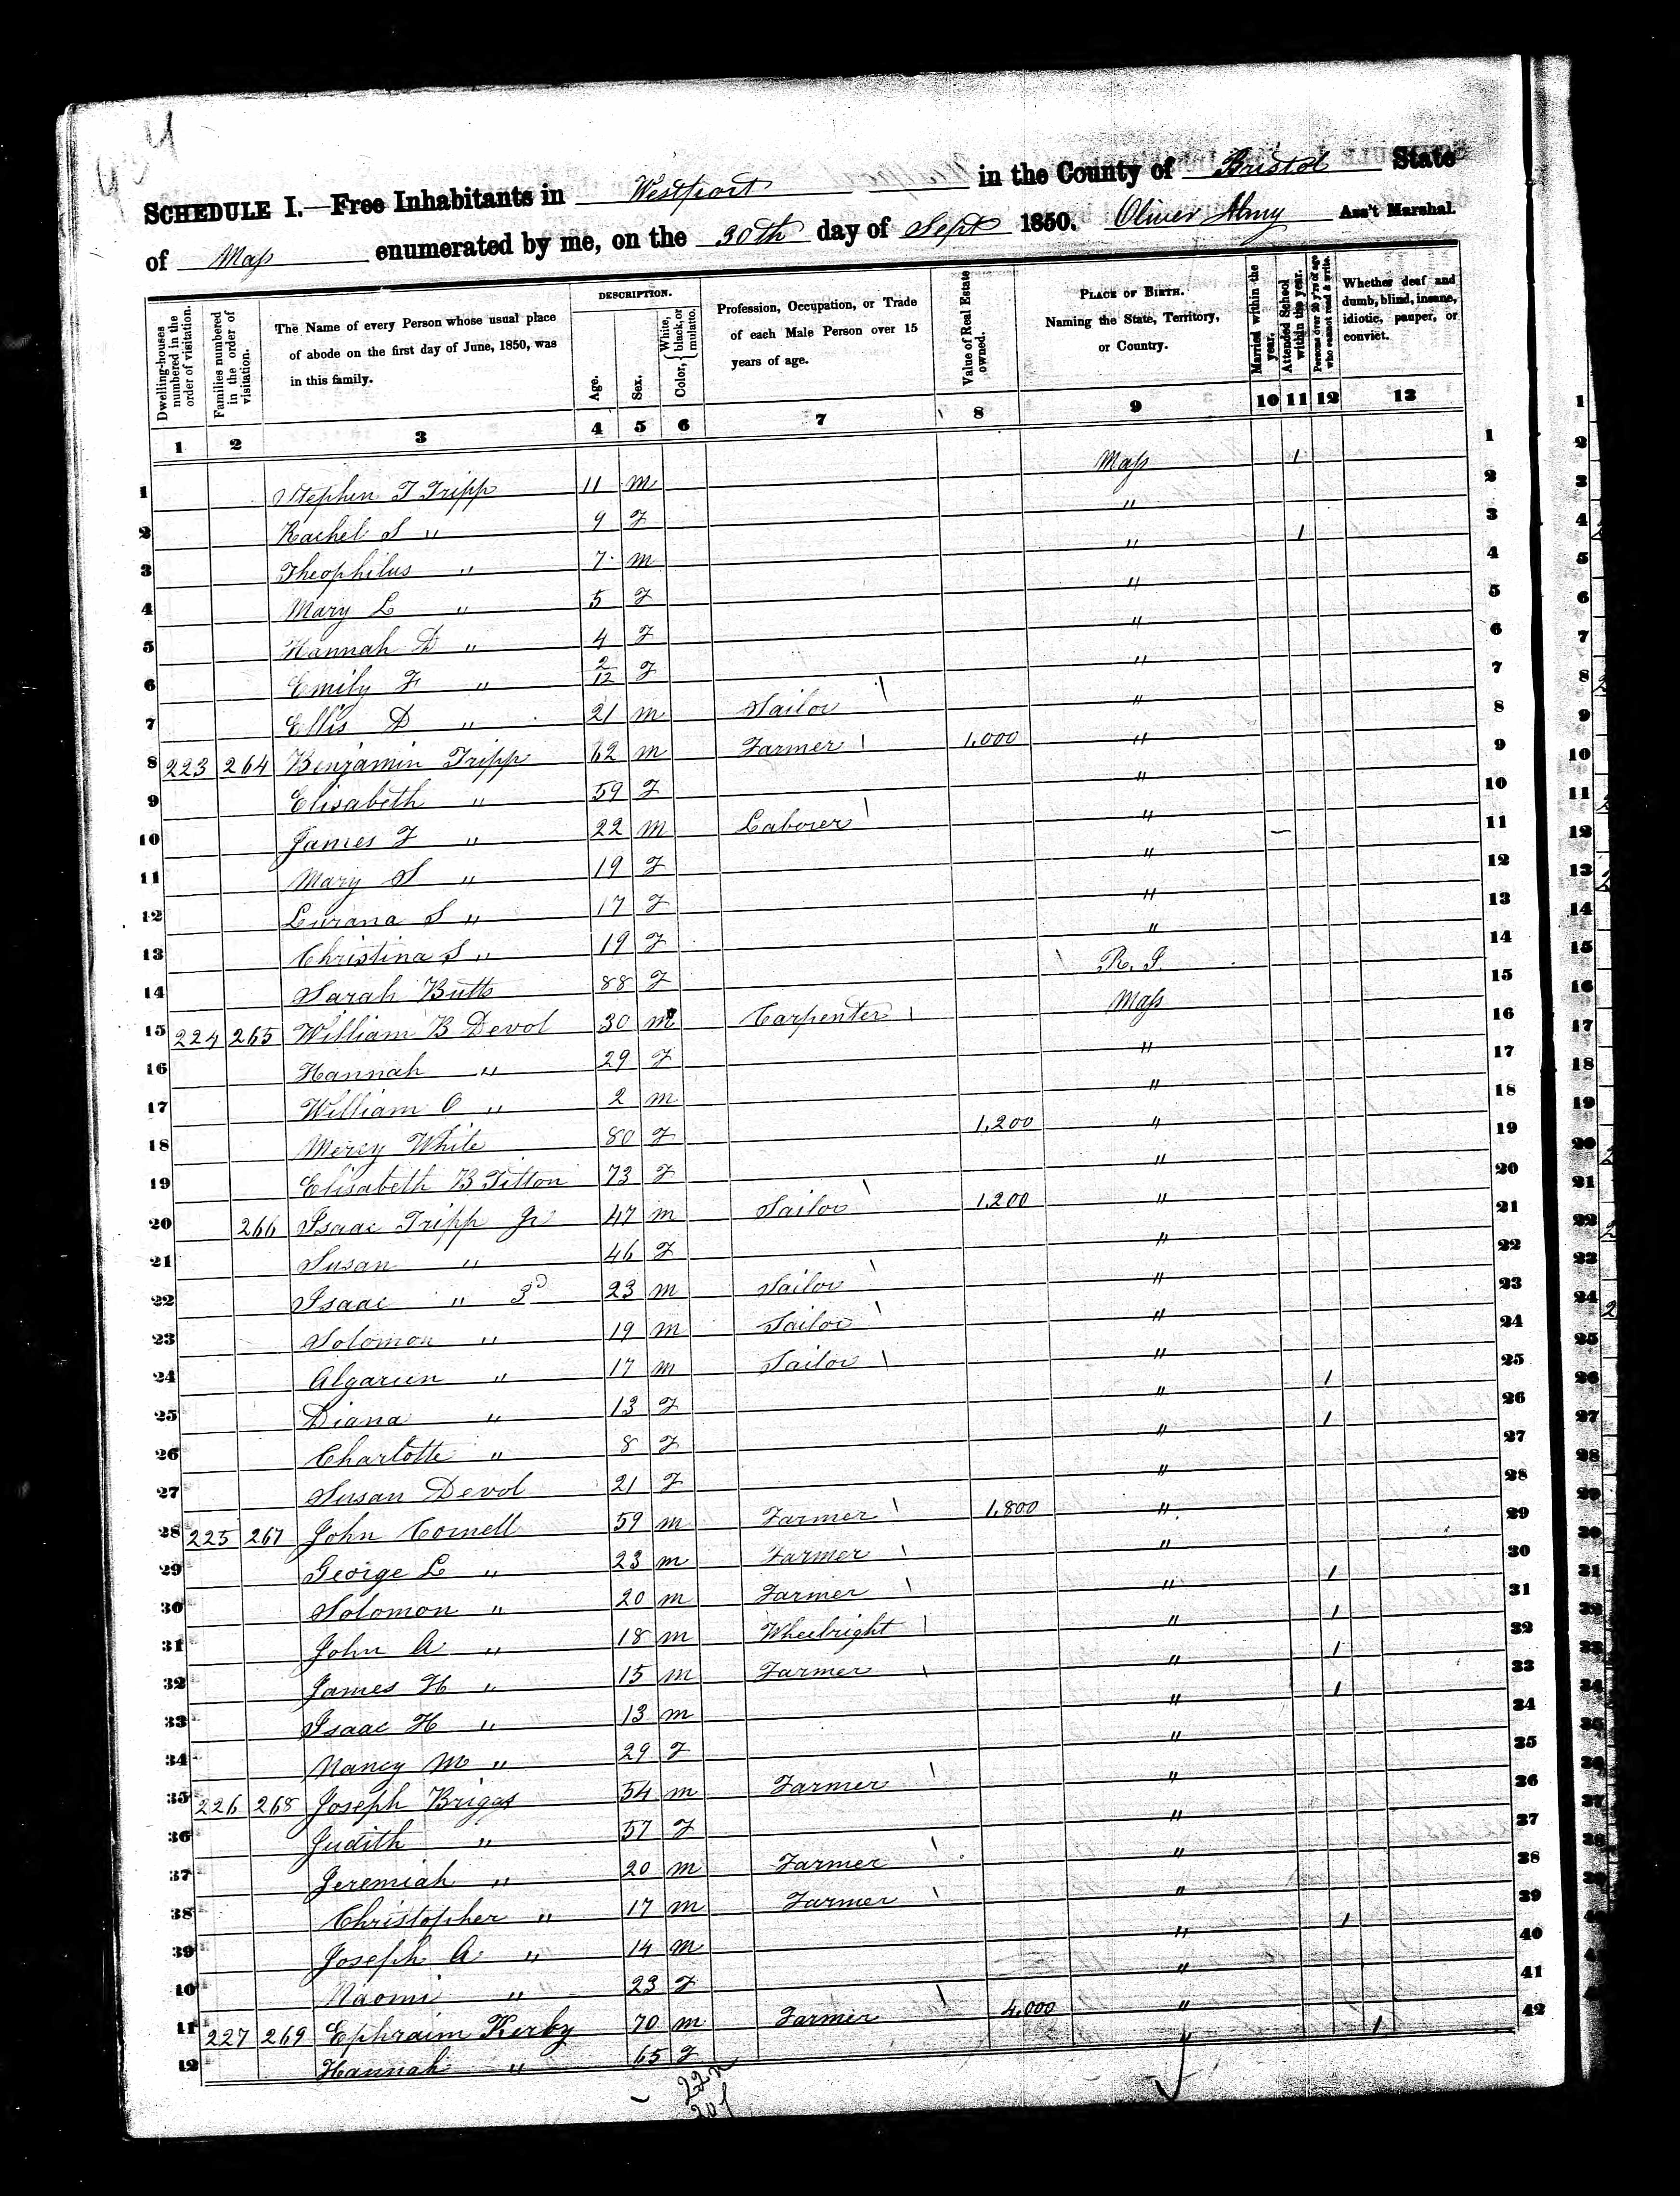 SCHEDULE I.—Free Inhabitants in Westport in the County of Bristol State
of Mass enumerated by me, on the 30th day of Sept 1850. Oliver Almy Ass't Marshal.
Dwelling-houses numbered in the order of visitation.
Families numbered in the order of visitation.
The Name of every Person whose usual place of abode on the first day of June, 1850, was in this family.
DESCRIPTION.
Age.
Sex.
Color, { White, black, or mulatto.
Profession, Occupation, or Trade of each Male Person over 15 years of age.
Value of Real Estate owned.
PLACE OF BIRTH.
Naming the State, Territory, or Country.
Married within the year.
Attended School within the year.
Persons over 20 y'rs of age who cannot read & write.
Whether deaf and dumb, blind, insane, idiotic, pauper, or convict.
1 2 3 4 5 6 7 8 9 10 11 12 13
1 Stephen T Tripp 11 m Mass 1 1
2 Rachel S " 9 F " 2
3 Theophilus " 7 m " 1 3
4 Mary L " 5 F " 4
5 Hannah D " 4 F " 5
6 Emily F " 2/12 F " 6
7 Ellis D " 21 m Sailor " 7
8 223 264 Benjamin Tripp 62 m Farmer 1,000 " 8
9 Elisabeth " 59 F " 9
10 James F " 22 m Laborer " 10
11 Mary S " 19 F " 11
12 Lurana S " 17 F " 12
13 Christina S " 19 F " 13
14 Sarah Butts 88 F R. I. 14
15 224 265 William B Devol 30 m Carpenter Mass 15
16 Hannah " 29 F " 16
17 William O " 2 m " 17
18 Mercy White 80 F 1,200 " 18
19 Elisabeth B Titton 73 F " 19
20 266 Isaac Tripp Jr 47 m Sailor 1,200 " 20
21 Susan " 46 F " 21
22 Isaac " 3d 23 m Sailor " 22
23 Solomon " 19 m Sailor " 23
24 17 m Sailor " 24
25 Diana " 13 F " 1 25
26 Charlotte " 8 F " 1 26
27 Susan Devol 21 F " 27
28 225 267 John Cornell 59 m Farmer 1,800 " 28
29 George L " 23 m Farmer " 29
30 Solomon " 20 m Farmer " 1 30
31 John A " 18 m Wheelright " 1 31
32 James H " 15 m Farmer " 1 32
33 Isaac H " 13 m " 1 33
34 Nancy M " 29 F " 34
35 226 268 Joseph Brigas 54 m Farmer " 35
36 Judith " 57 F " 36
37 Jeremiah " 20 m Farmer " 37
38 Christopher " 17 m Farmer " 38
39 Joseph A " 14 m " 1 39
40 Naomi " 23 F " 40
41 227 269 Ephraim Kerby 70 m Farmer 4,000 " 41
42 Hannah " 65 F " 1 42
22 m
20 f